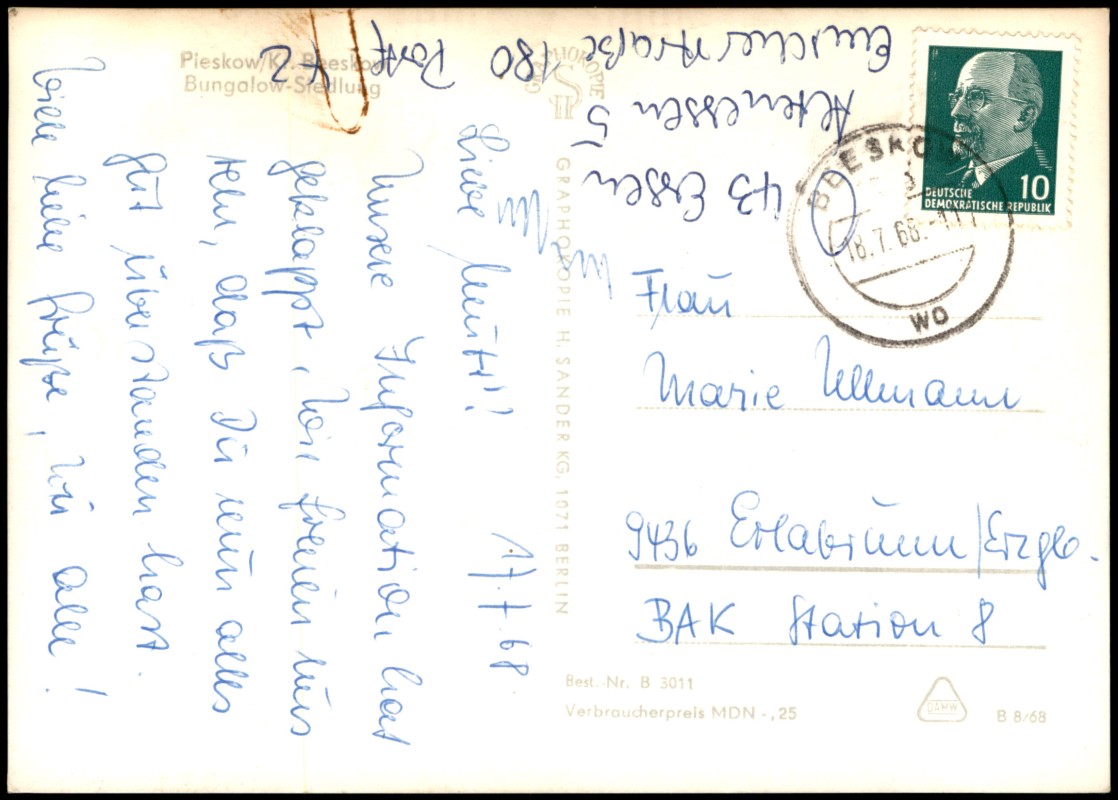 Pieskow/Kr. Beeskow
Bungalow-Siedlung
Liebe Mutti!
17.7.68
Unsere Information hat
geklappt, wir freuen uns
sehr, daß Du nun alles
gut überstanden hast.
Viele liebe Grüße, wir alle!
GRAPHOKOPIE H. SANDER KG. 1071 BERLIN
GRAPHOKOPIE
H S
43 Essen
Altenessen 5
straße 180 Post
42
DEUTSCHE
DEMOKRATISCHE REPUBLIK
10
BEESKOW
18.7.68
Frau
Marie Ullmann
9436 Erlabrunn/Erzgb.
BAK Station 8
Best.-Nr. B 3011
Verbraucherpreis MDN -,25
DAMW
B 8/68